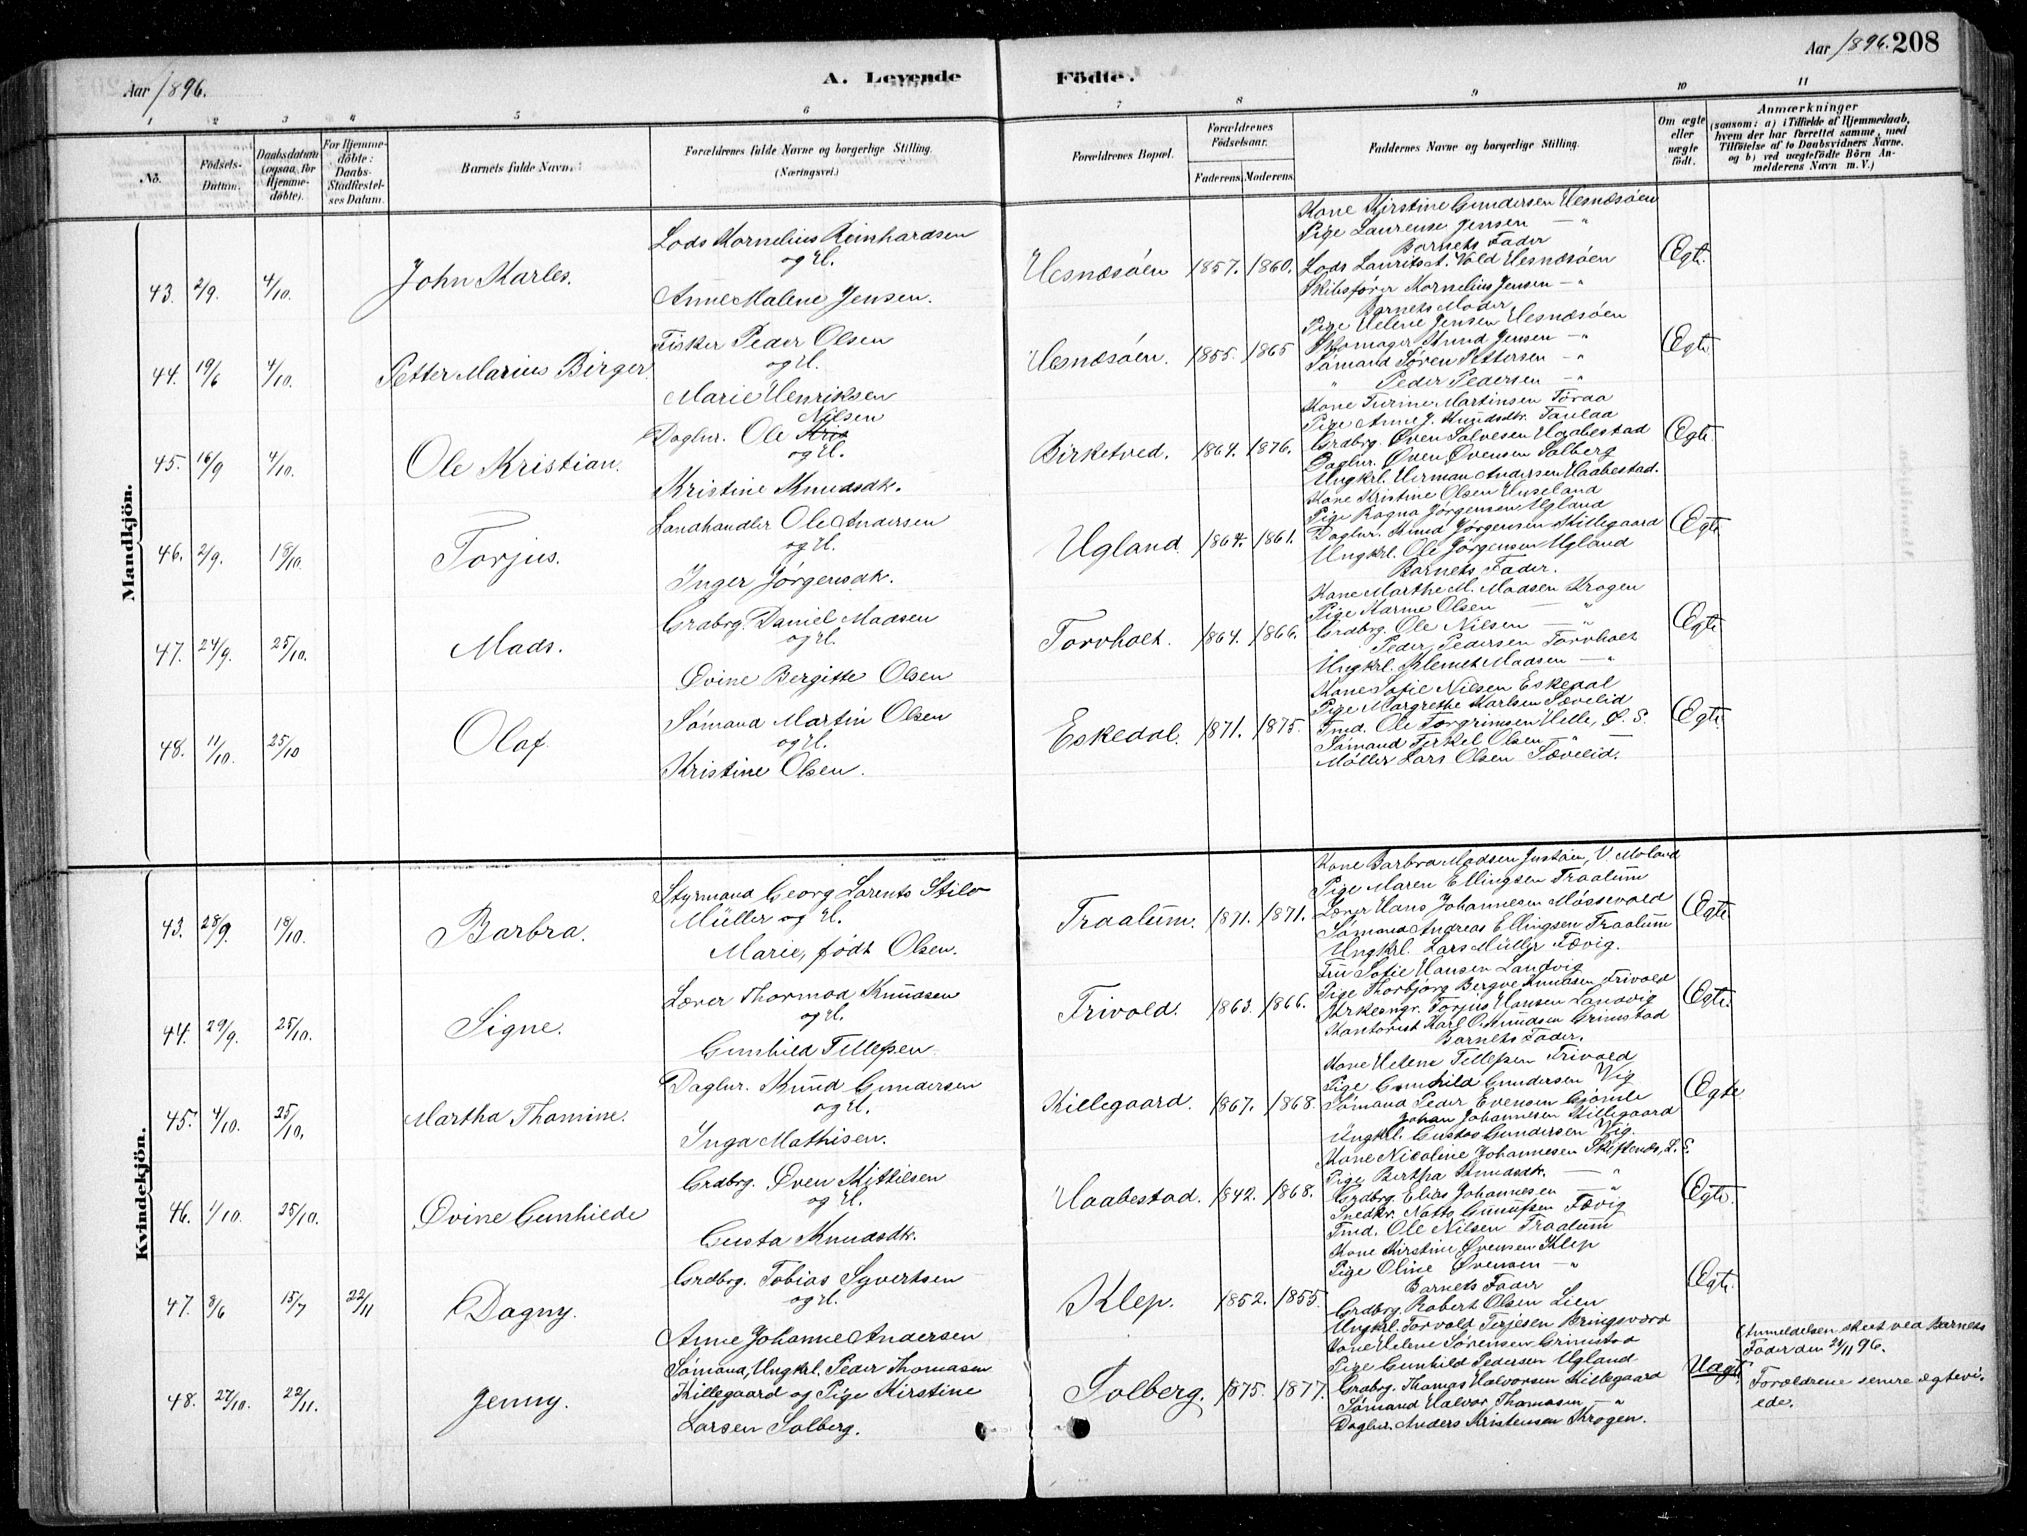 Aar 1896.
A. Levende Födte.
Aar 1896. 208
1 2 3 4 5 6 7 8 9 10 11
No.
Födsels-Datum.
Daabsdatum (ogsaa for Hjemmedöbte).
For Hjemmedöbte: Daabs-Stadfæstelses Datum.
Barnets fulde Navn.
Forældrenes fulde Navne og borgerlige Stilling. (Næringsvei.)
Forældrenes Bopæl.
Forældrenes Födselsaar.
Faderens. Moderens.
Faddernes Navne og borgerlige Stilling.
Om ægte eller uægte födt.
Anmærkninger
(saasom: a) i Tilfælde af Hjemmedaab, hvem der har forrettet samme, med Tilföielse af to Daabsvidners Navne, og b) ved uægtefödte Börn Anmelderens Navn m. V.)
Mandkjön.
43. 2/9. 4/10. John Karles.
Lods Kornelius Reinhardsen
og H.
Anne Malene Jensen.
Hesnæsøen 1857. 1860.
Kone Kirstine Gundersen Hesnæsøen
Pige Laurense Jensen — "
Barnets Fader
Lods Laurits A. Vold Hesnæsøen
Skibsfører Kornelius Jensen — "
Barnets Moder
Ægte.
44. 19/6 4/10. Petter Marius Birger.
Fisker Peder Olsen
og H.
Marie Henriksen
Hesnæsøen. 1855. 1865
Pige Helene Jensen Hesnæsøen
Skomager Knud Jensen — "
Sømand Søren Pettersen — "
" Peder Pedersen — "
Ægte
45. 16/9 4/10. Ole Kristian.
Nilsen
Daglnr. Ole
og H.
Kristine Knudsdtr.
Birketved. 1864. 1876.
Kone Turine Martinsen Töraa
Pige Anne J. Knudsdtr. Taulaa
Grdbrg. Øven Salvesen Haabestad
Daglnr. Øven Øvensen Solberg
Ungkrl. Herman Andersen Haabestad.
Ægte.
46. 2/9. 18/10. Torjus.
Landhandler Ole Andersen
og H.
Inger Jørgensdtr.
Ugland 1864. 1861.
Kone Kristine Olsen Huseland
Pige Ragna Jørgensen Ugland
Daglnr. Knud Jørgensen Killegaard
Ungkrl. Ole Jørgensen Ugland
Barnets Fader.
Ægte
47. 24/9. 25/10. Mads.
Grdbrg. Daniel Madsen
og H.
Øvine Bergitte Olsen
Torvholt. 1864. 1866.
Kone Marthe M. Madsen Krogen
Pige Marine Olsen — "
Grdbrg. Ole Nilsen — "
" Peder Pedersen Torvholt
Ungkrl. Klemet Madsen — "
Ægte
48. 11/10. 25/10 Olaf.
Sømand Martin Olsen
og H.
Kristine Olsen.
Eskedal. 1871. 1875.
Kone Sofie Nilsen Eskedal
Pige Margrethe Karlsen Sævelid
Tmd. Ole Torgrimsen Helle, Ø. S.
Sømand Terkel Olsen — "
Møller Lars Olsen Sævelid.
Ægte
Kvindekjön.
43. 28/9. 18/10. Barbra.
Styrmand Georg Lorents Stilo
Müller og H.
Marie, født Olsen.
Traalum. 1871. 1871.
Kone Barbra Madsen Justøen, V. Moland
Pige Maren Ellingsen Traalum
Lærer Hans Johannesen Møssevold
Sømand Andreas Ellingsen Traalum
Ungkrl. Lars Müller Fævig.
Ægte
44. 29/9. 25/10. Signe.
Lærer Thormod Knudsen
og H.
Gunhild Tellefsen
Frivold. 1863. 1866.
Fru Sofie Hansen Landvig
Pige Thorbjørg Bergve Knudsen Frivold
Kirkesngr. Torjus Hansen Landvig
Kontorist Karl O. Knudsen Grimstad
Barnets Fader.
Ægte.
45. 4/10. 25/10. Martha Thomine.
Daglnr. Knud Gundersen
og H.
Inga Mathisen.
Killegaard. 1867. 1868.
Kone Helene Tellefsen Frivold
Pige Gunhild Gundersen Vig
Sømand Peder Evensen Gjømle
" Johan Johannesen Killegaard
Ungkrl. Gustav Gundersen Vig.
Ægte
46. 1/10. 25/10. Øvine Gunhilde
Grdbrg. Øven Kittilsen
og H.
Gusta Knudsdtr.
Haabestad. 1842. 1868.
Kone Nicoline Johannesen Skiftenæs, L. S.
Pige Bertha Knudsdtr. — "
Grdbrg. Elias Johannesen — "
Snedkr. Natto Gunufsen Fævig
Tmd. Ole Nilsen Traalum
Ægte.
47. 8/6 15/7 22/11 Dagny.
Grdbrg. Tobias Syvertsen
og H.
Anne Johanne Andersen
Klep. 1852. 1855.
Kone Kirstine Øvensen Klep
Pige Oline Øvensen — "
Barnets Fader
Grdbrg. Robert Olsen Lien
Ungkrl. Torvald Terjesen Bringsværd
Ægte.
48. 27/10. 22/11. Jenny.
Sømand, Ungkrl. Peder Thomasen
Killegaard og Pige Kirstine
Larsen Solberg.
Solberg. 1875. 1877.
Kone Helene Sørensen Grimstad
Pige Gunhild Pedersen Ugland
Grdbrg. Thomas Halvorsen Killegaard
Sømand Halvor Thomasen — "
Daglnr. Anders Kristensen Krogen.
Uægt.
Anmeldelsen skeet ved Barnets
Fader den 21/11 96.
Forældrene senere ægtevi-
ede.